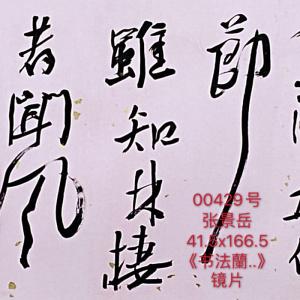 節
雖知林棲
者聞風
00429号
张景岳
41.5x166.5
《书法蘭..》
镜片